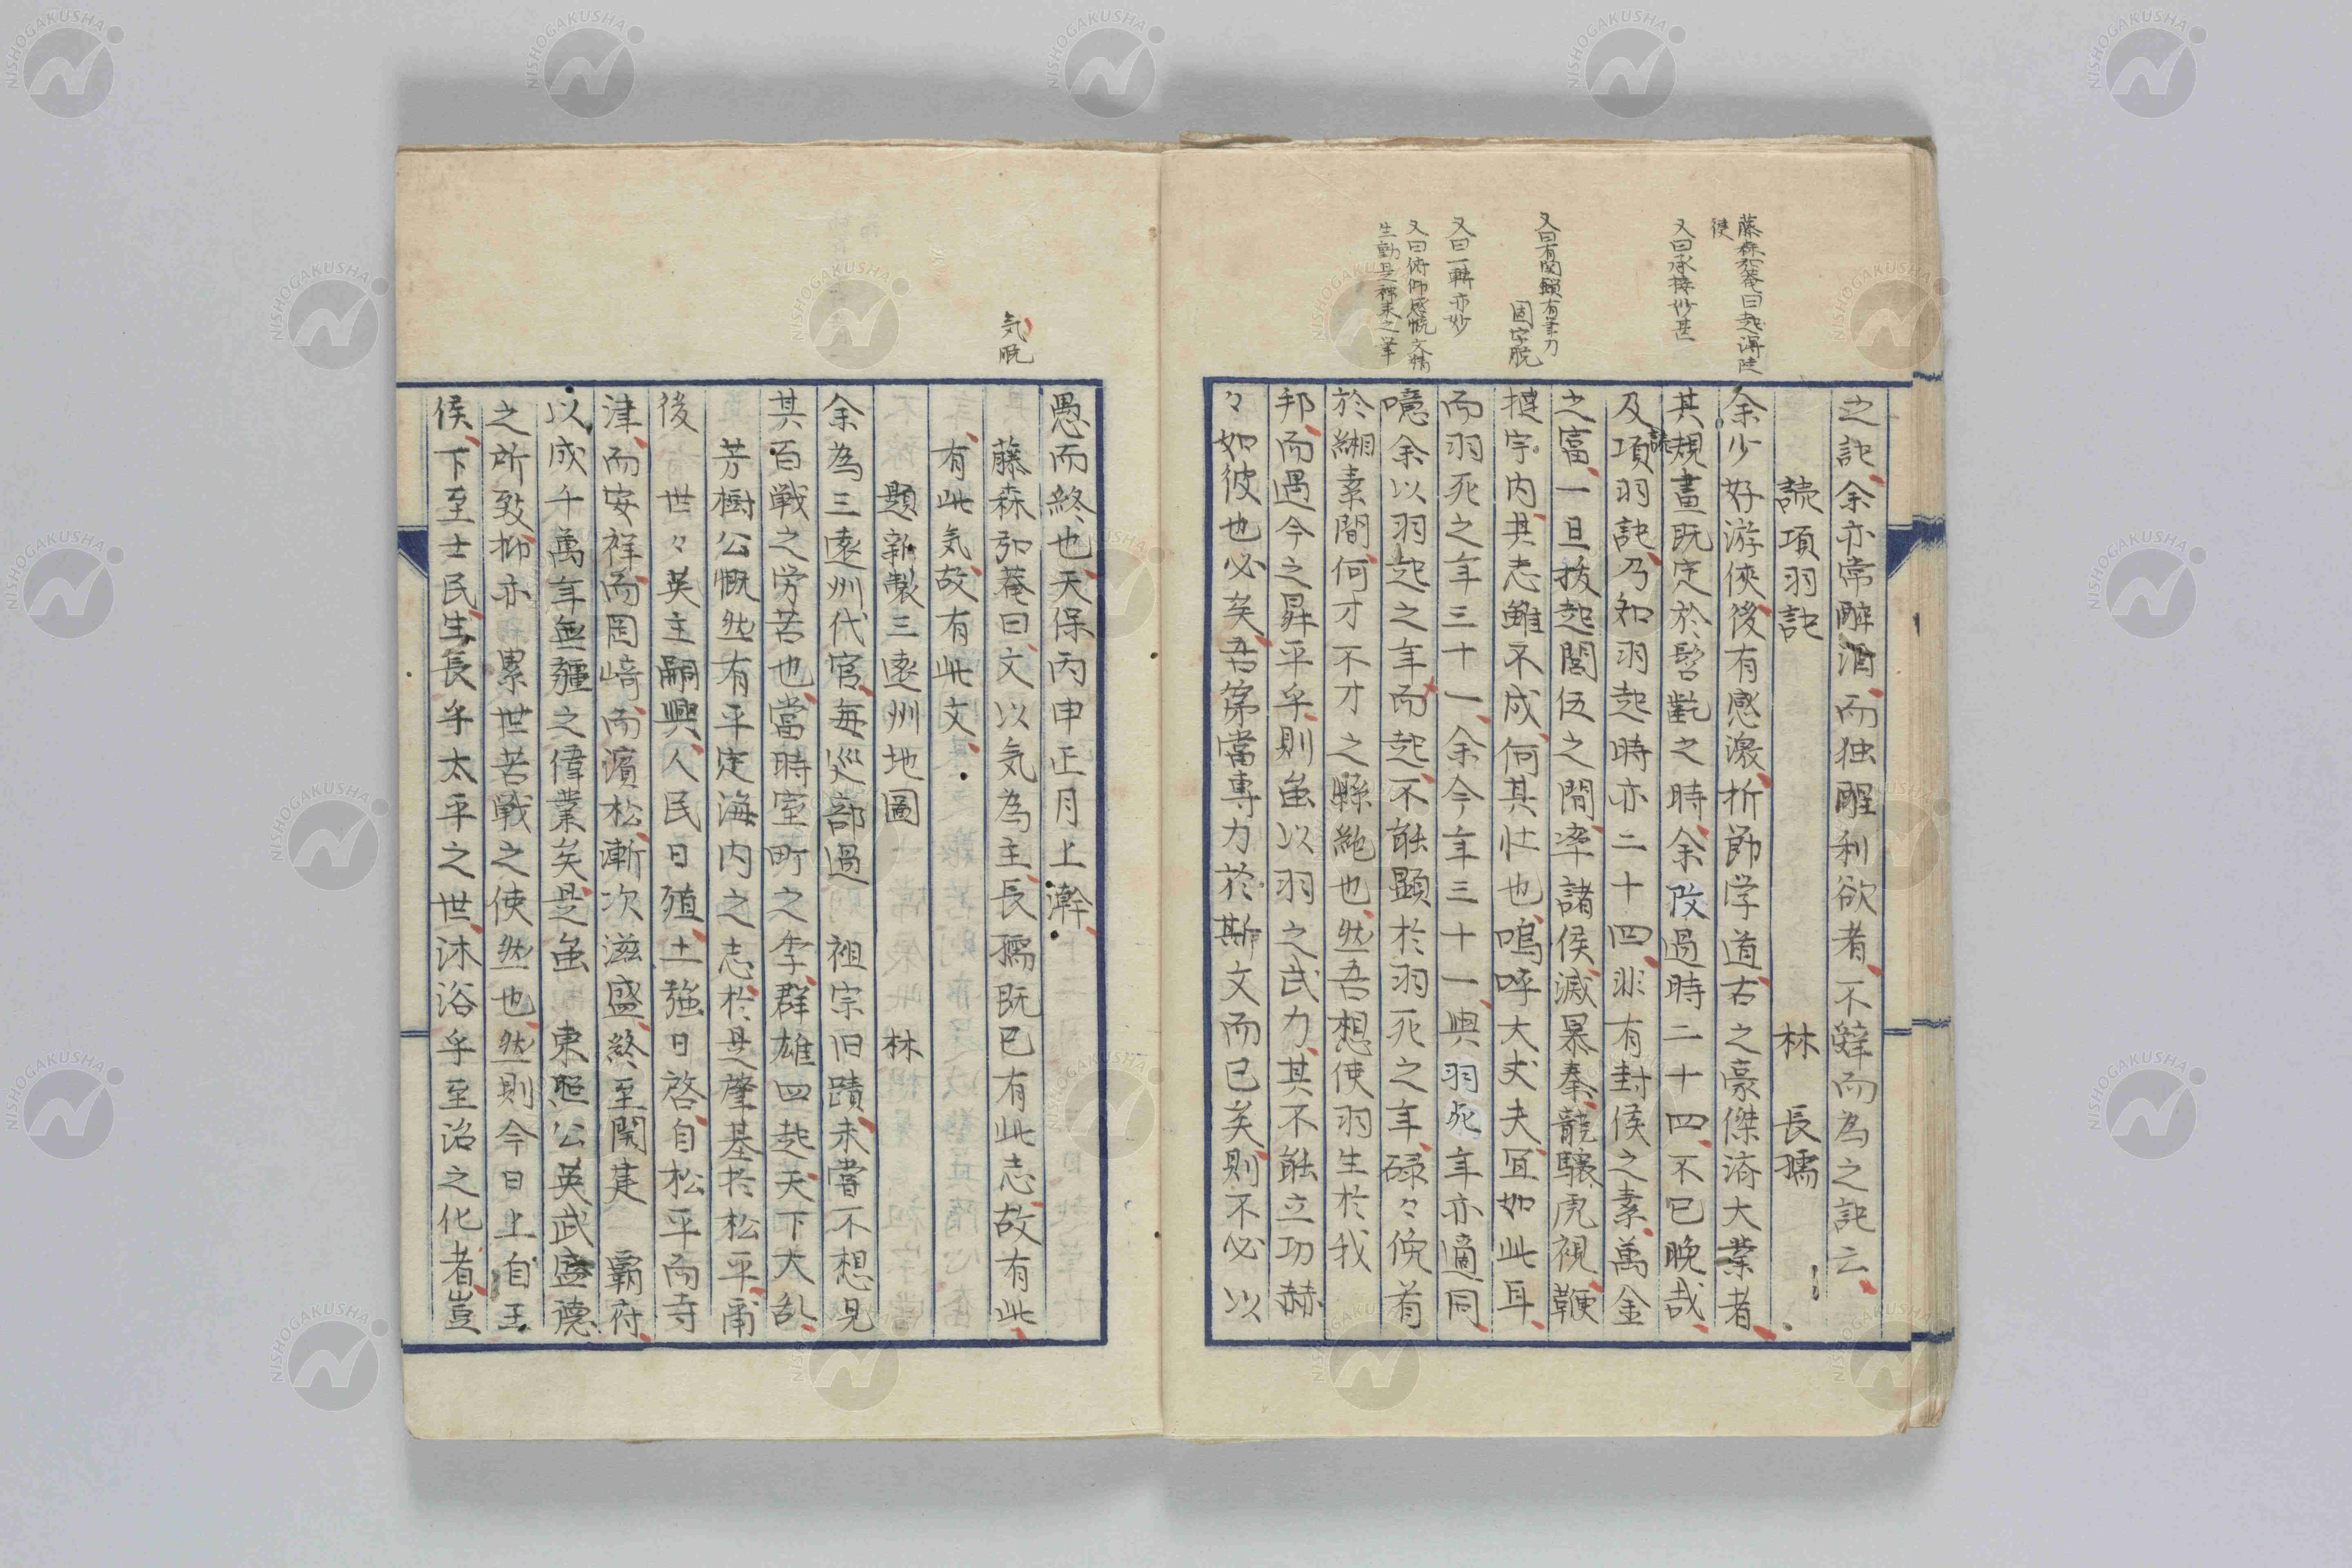 藤森弘菴曰起得陡
使
又曰承接妙甚
又曰有関鎖有筆力
固字脱
又曰一転亦妙
又曰俯仰感慨文情
生動是神来之筆
之記余亦常酔酒而独醒利欲者不辞而為之記云
読項羽記 林 長孺
余少好游侠後有感激折節学道古之豪傑済大業者
其規畫既定於髫齔之時余改過時二十四不已晩哉
及読項羽記乃知羽起時亦二十四非有封侯之素萬金
之富一旦抜起閭伍之間率諸侯滅暴秦龍驤虎視鞭
撻宇内其志雖不成何其壮也嗚呼大丈夫宜如此耳
而羽死之年三十一余今年三十一與羽死年亦適同
噫余以羽起之年而起不能顕於羽死之年碌々俛首
於緗素間何才不才之縣絶也然吾想使羽生於我
邦而遇今之昇平乎則虽以羽之武力其不能立功赫
々如彼也必矣吾第當専力於斯文而已矣則不必以
気脱
愚而終也天保丙申正月上澣
藤森弘菴曰文以気為主長孺既已有此志故有此
有此気故有此文
題新製三遠州地圖 林
余為三遠州代官毎巡部過 祖宗旧蹟未嘗不想見
其百戦之労苦也當時室町之季群雄四起天下大乱
芳樹公慨然有平定海内之志於是肇基於松平甭
後世々英主嗣興人民日殖土強日啓自松平而寺
津而安祥而岡﨑而濱松漸次滋盛終至関建 覇府
以成千萬年無疆之偉業矣是虽 東照公英武盛徳
之所致抑亦累世苦戦之使然也然則今日上自王
侯下至士民生長乎太平之世沐浴乎至治之化者豈